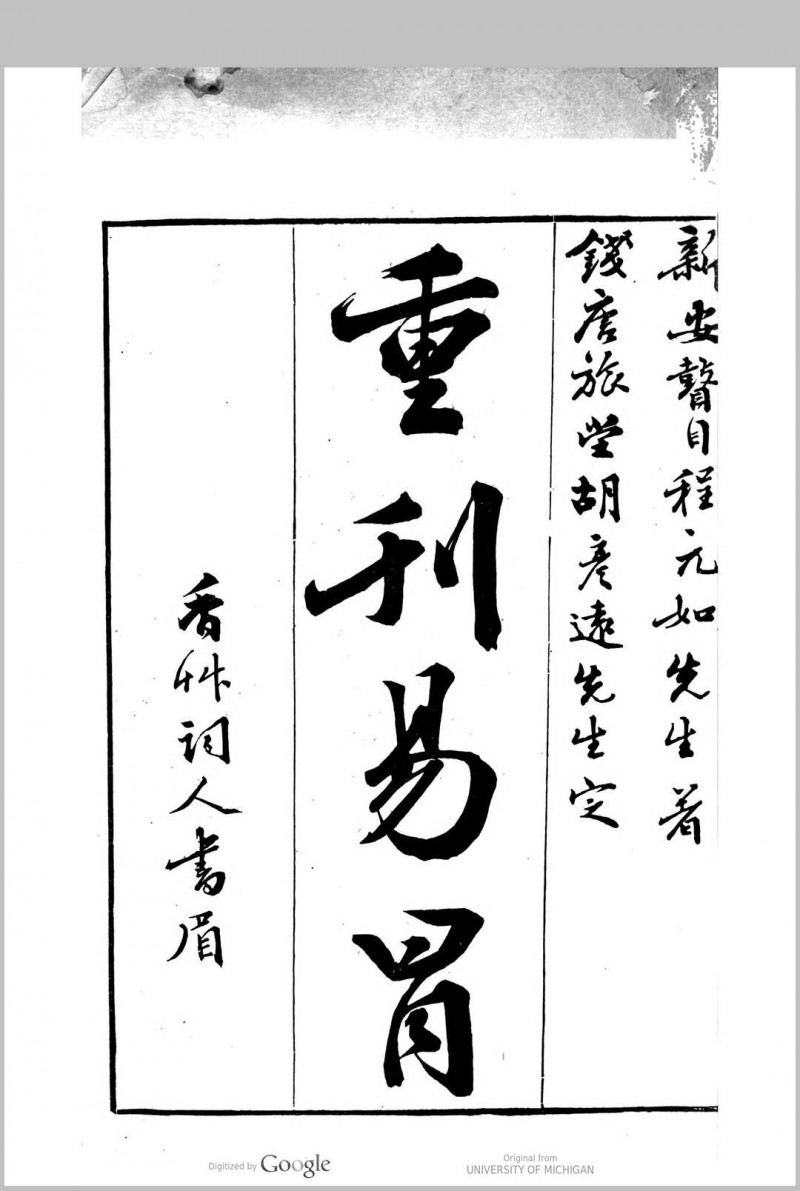 新安瞽目程元如先生著
錢唐旅堂胡彥遠先生定
重刊易冒
香艸詞人書眉
Digitized by Google
Original from
UNIVERSITY OF MICHIGAN